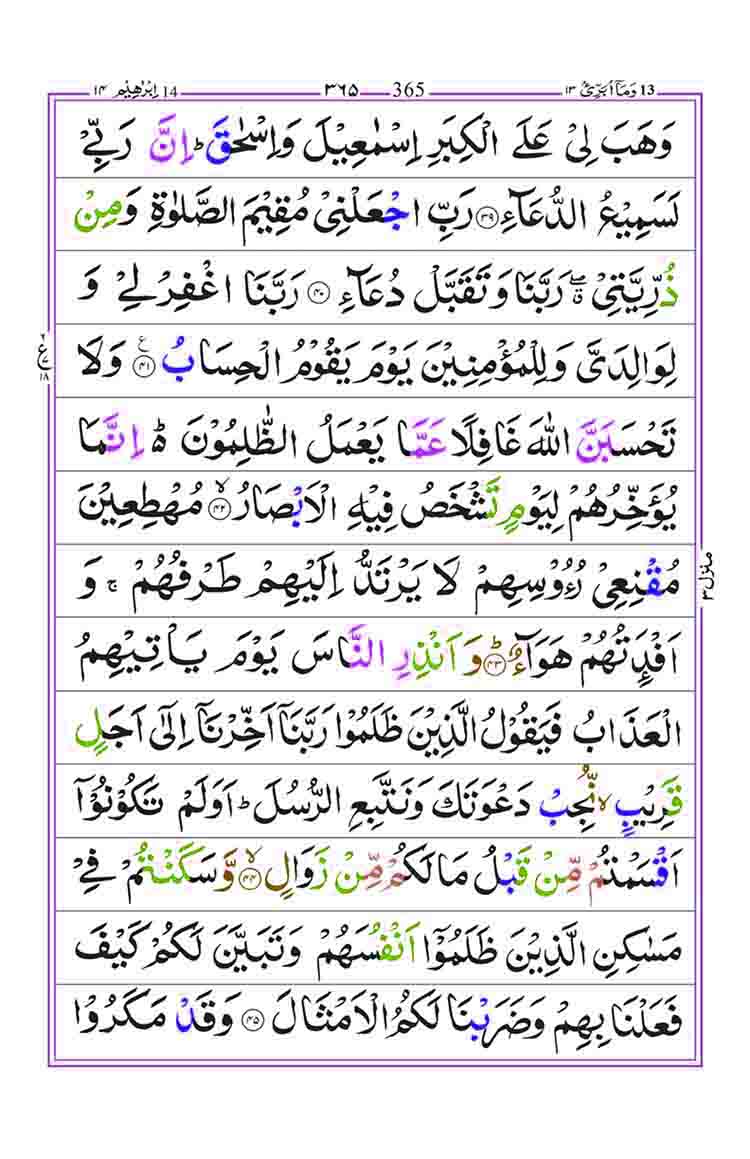 ١٣ وَمَآ اُبَرِّئُ 13 365 ٣٦٥ 14 اِبْرٰهِيْم ١٤
وَهَبَ لِىْ عَلَى الْكِبَرِ اِسْمٰعِيْلَ وَاِسْحٰقَ ؕ اِنَّ رَبِّىْ
لَسَمِيْعُ الدُّعَآءِ ﴿٣٩﴾ رَبِّ اجْعَلْنِىْ مُقِيْمَ الصَّلٰوةِ وَمِنْ
ذُرِّيَّتِىْ ۖۗ رَبَّنَا وَتَقَبَّلْ دُعَآءِ ﴿٤٠﴾ رَبَّنَا اغْفِرْ لِىْ وَ
لِوَالِدَىَّ وَلِلْمُؤْمِنِيْنَ يَوْمَ يَقُوْمُ الْحِسَابُ ﴿٤١﴾ ع وَلَا
٦ ع ٧ ١٨
تَحْسَبَنَّ اللّٰهَ غَافِلًا عَمَّا يَعْمَلُ الظّٰلِمُوْنَ ؕ اِنَّمَا
يُؤَخِّرُهُمْ لِيَوْمٍ تَشْخَصُ فِيْهِ الْاَبْصَارُ ۙ﴿٤٢﴾ مُهْطِعِيْنَ
مُقْنِعِىْ رُءُوْسِهِمْ لَا يَرْتَدُّ اِلَيْهِمْ طَرْفُهُمْ ۚ وَ
منزل ٣
اَفْـِٕدَتُهُمْ هَوَآءٌ ؕ﴿٤٣﴾ وَاَنْذِرِ النَّاسَ يَوْمَ يَاْتِيْهِمُ
الْعَذَابُ فَيَقُوْلُ الَّذِيْنَ ظَلَمُوْا رَبَّنَآ اَخِّرْنَآ اِلٰٓى اَجَلٍ
قَرِيْبٍ ۙ نُّجِبْ دَعْوَتَكَ وَنَتَّبِعِ الرُّسُلَ ؕ اَوَلَمْ تَكُوْنُوْٓا
اَقْسَمْتُمْ مِّنْ قَبْلُ مَا لَكُمْ مِّنْ زَوَالٍ ۙ﴿٤٤﴾ وَّسَكَنْتُمْ فِىْ
مَسٰكِنِ الَّذِيْنَ ظَلَمُوْٓا اَنْفُسَهُمْ وَتَبَيَّنَ لَكُمْ كَيْفَ
فَعَلْنَا بِهِمْ وَضَرَبْنَا لَكُمُ الْاَمْثَالَ ﴿٤٥﴾ وَقَدْ مَكَرُوْا